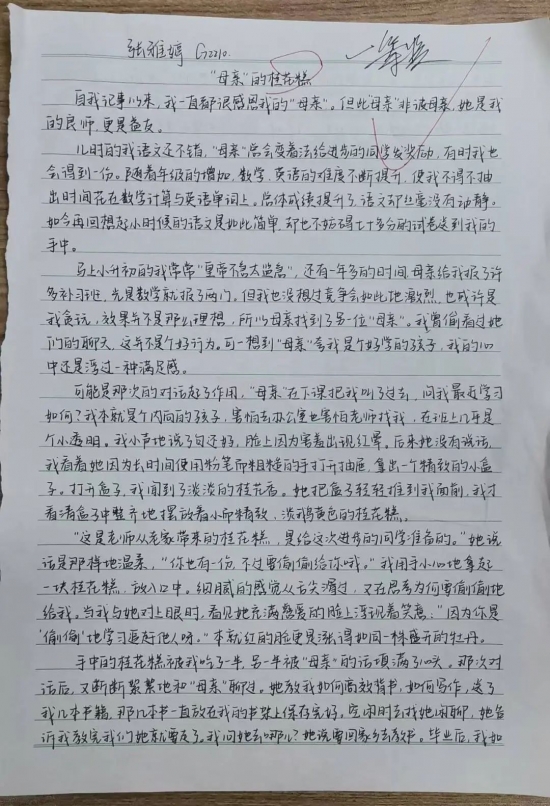 张雅婷 G2210.
一等奖
“母亲”的桂花糕
自我记事以来，我一直都很感恩我的“母亲”。但此“母亲”非彼母亲，她是我
的良师，更是益友。
儿时的我语文还不错，“母亲”总会变着法给进步的同学发奖励，有时我也
会得到一份。随着年级的增加，数学，英语的难度不断提升，使我不得不抽
出时间花在数学计算与英语单词上。总体成绩提升了，语文却丝毫没有动静。
如今再回想起小时候的语文是如此简单，却也不妨碍七十多分的试卷送到我的
手中。
马上小升初的我常常“皇帝不急太监急”，还有一年多的时间，母亲给我报了许
多补习班，光是数学就报了两门。但我也没想过竞争会如此地激烈，也或许是
我贪玩，效果并不是那么理想，所以母亲找到了另一位“母亲”。我曾偷看过她
们的聊天，这并不是个好行为。可一想到“母亲”夸我是个好学的孩子，我的心
中还是浮过一种满足感。
可能是那次的对话起了作用，“母亲”在下课把我叫了过去，问我最近学习
如何？我本就是个内向的孩子，害怕去办公室也害怕老师找我，在班上几乎是
个小透明。我小声地说了句还好，脸上因为害羞出现红晕。后来她没有说话，
我看着她因为长时间使用粉笔而粗糙的手打开抽屉，拿出一个精致的小盒
子。打开盒子，我闻到了淡淡的桂花香。她把盒子轻轻推到我面前，我才
看清盒子中整齐地摆放着小而精致，淡鹅黄色的桂花糕。
“这是老师从老家带来的桂花糕，是给这次进步的同学准备的。”她说
话是那样地温柔，“你也有一份，不过要偷偷给你哦。”我用手小心地拿起
一块桂花糕，放入口中。细腻的感觉从舌尖滑过，又在思考为何要偷偷地
给我。当我与她对上眼时，看见她充满慈爱的脸上浮现着笑意：“因为你是
‘偷偷’地学习追赶他人呀。”本就红的脸更是涨得如同一株盛开的牡丹。
手中的桂花糕被我吃了一半，另一半被“母亲”的话填满了心头。那次对
话后，又断断絮絮地和“母亲”聊过。她教我如何高效背书，如何写作，送了
我几本书籍，那几本书一直放在我的书架上保存完好。空闲时去找她闲聊，她告
诉我教完我们她就要走了。我问她去哪儿？她说要回家乡去教书。毕业后，我如